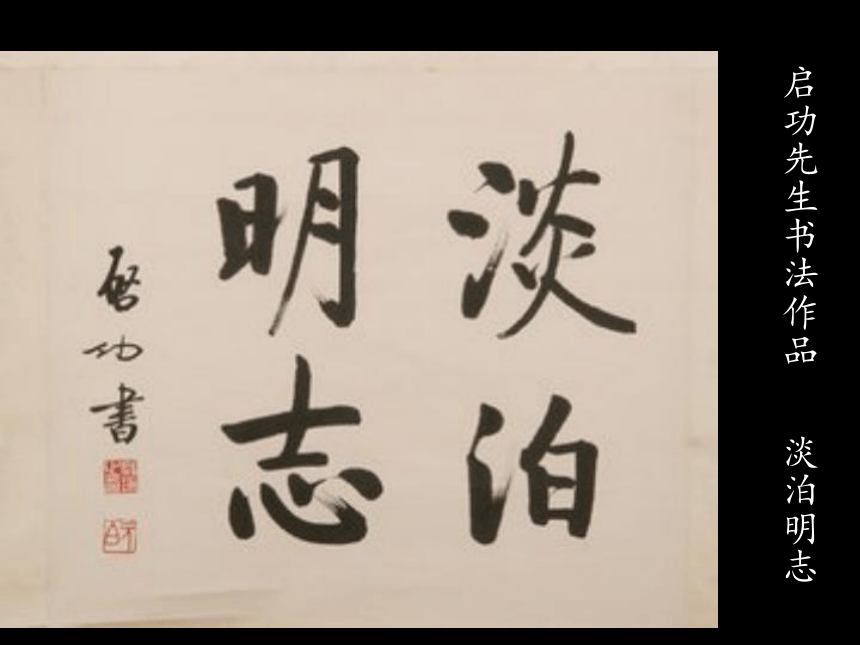 启功先生书法作品 淡泊明志
淡泊
明志
啓功書